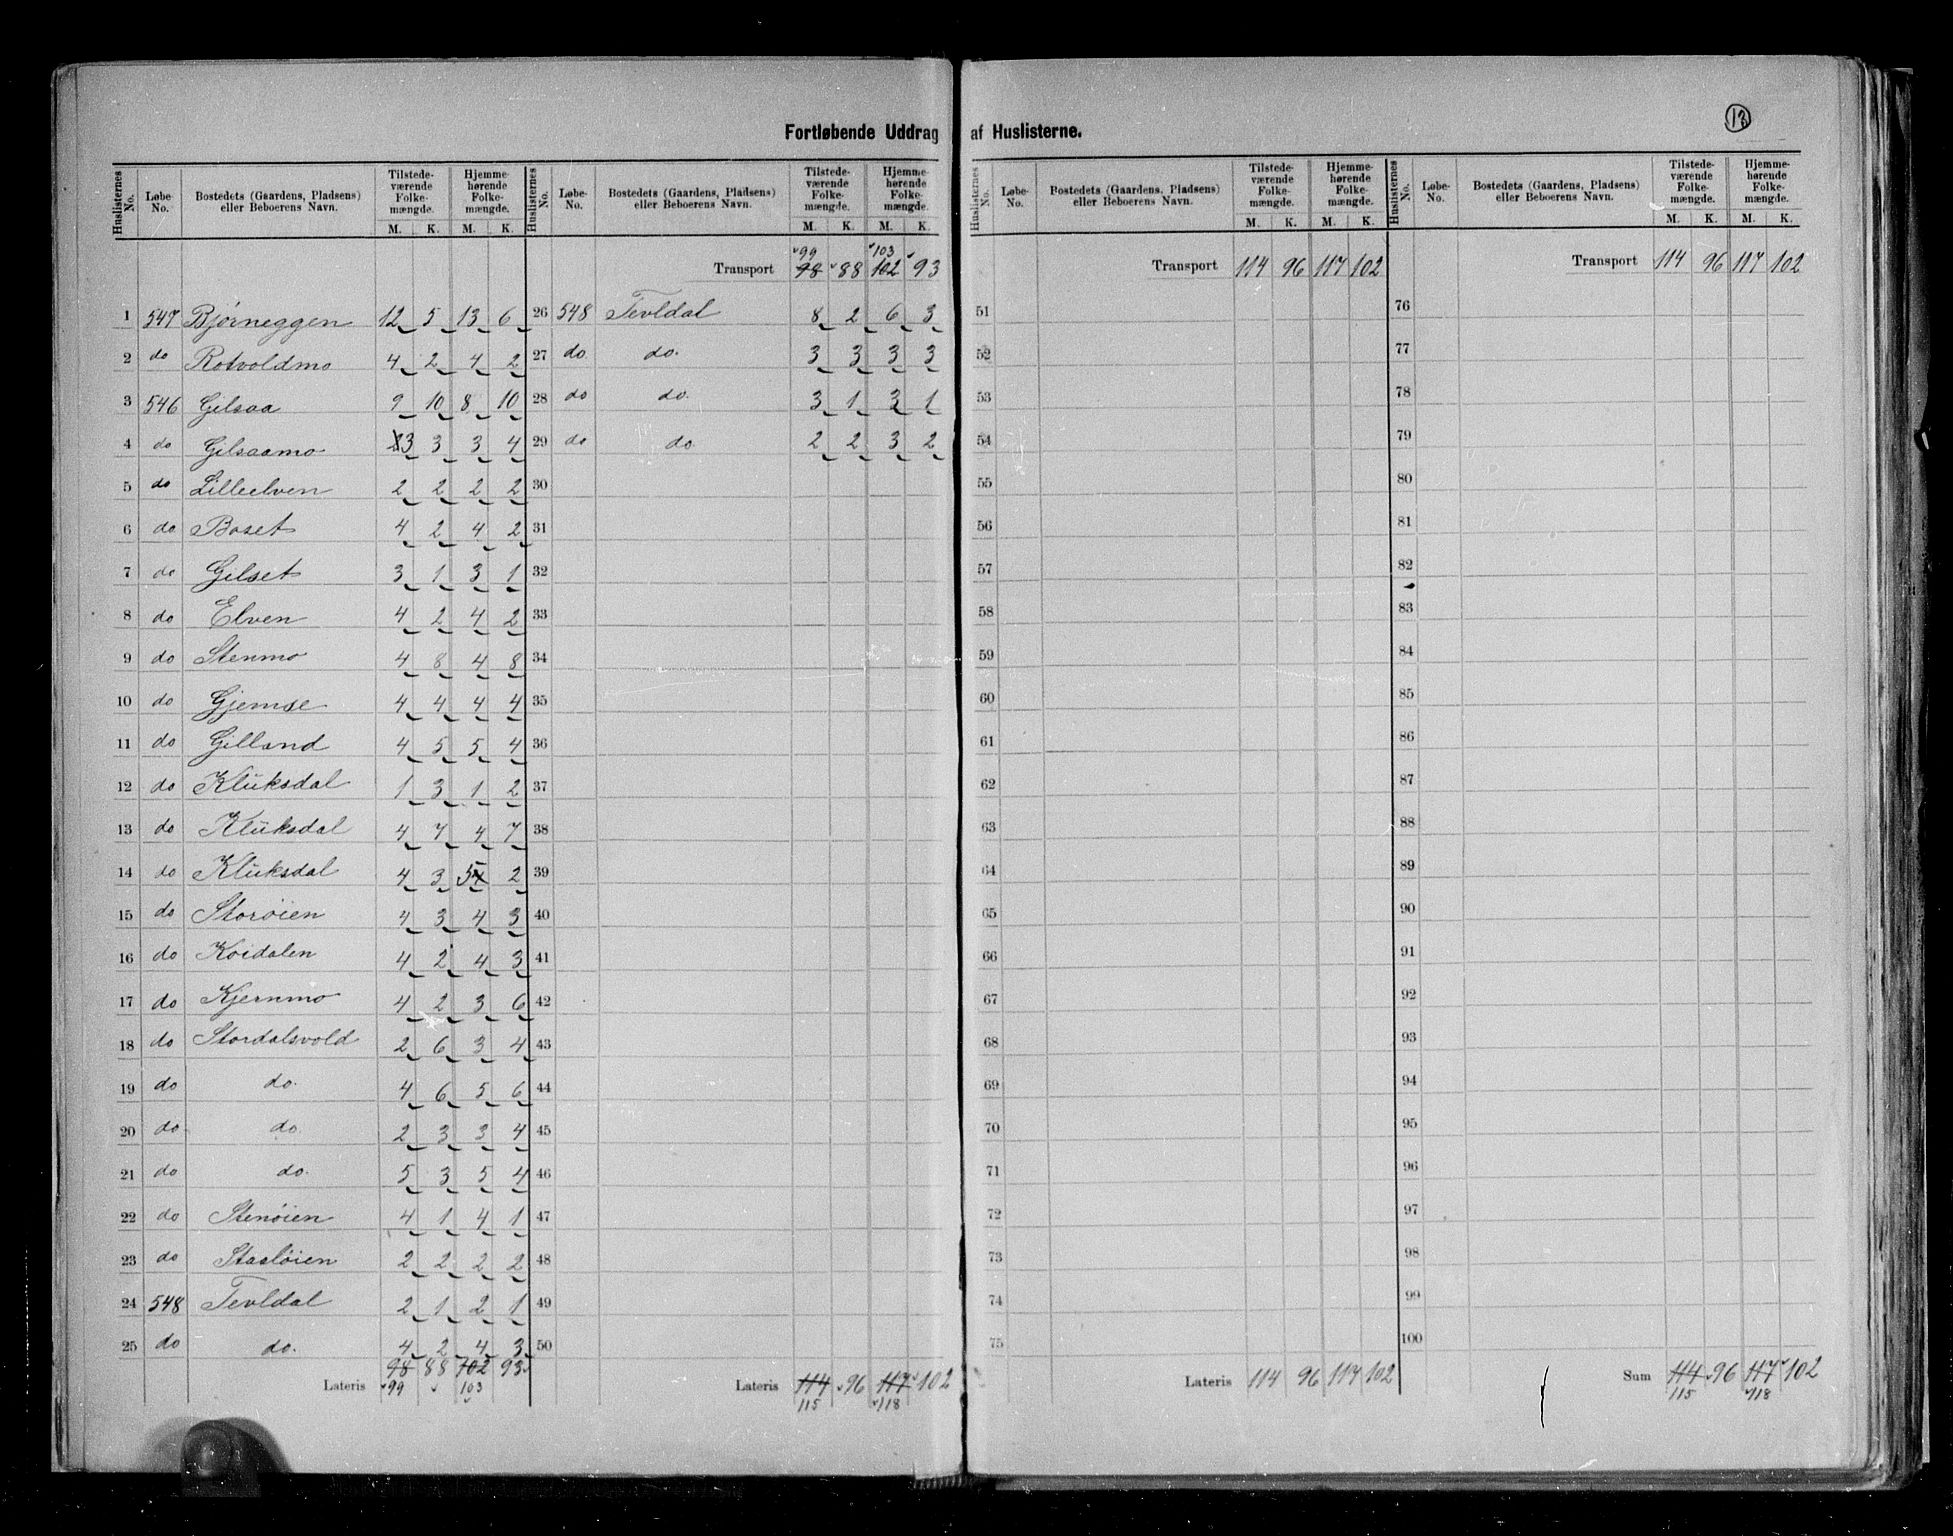 Fortløbende Uddrag af Huslisterne.
13
Huslisternes No. | Løbe-No. | Bostedets (Gaardens, Pladsens) eller Beboerens Navn. | Tilstedeværende Folkemængde. M. K. | Hjemmehørende Folkemængde. M. K.
1 547 Bjørneggen 12 5 13 6
2 do Rotvoldmo 4 2 4 2
3 546 Gilsaa 9 10 8 10
4 do Gilsaamo 3 3 3 4
5 do Lilleelven 2 2 2 2
6 do Boset 4 2 4 2
7 do Gilset 3 1 3 1
8 do Elven 4 2 4 2
9 do Stenmo 4 8 4 8
10 do Gjemse 4 4 4 4
11 do Gilland 4 5 5 4
12 do Klüksdal 1 3 1 2
13 do Klüksdal 4 7 4 7
14 do Klüksdal 4 3 5 2
15 do Storøien 4 3 4 3
16 do Koidalen 4 2 4 3
17 do Kjernmo 4 2 3 6
18 do Stordalsvold 2 6 3 4
19 do do. 4 6 5 6
20 do do. 2 3 3 4
21 do do. 5 3 5 4
22 do Stenøien 4 1 4 1
23 do Stasløien 2 2 2 2
24 548 Tevldal 2 1 2 1
25 do do. 4 2 4 3
98 88 102 93
Lateris 99 103
Huslisternes No. | Løbe-No. | Bostedets (Gaardens, Pladsens) eller Beboerens Navn. | Tilstedeværende Folkemængde. M. K. | Hjemmehørende Folkemængde. M. K.
99 103
Transport 98 88 102 93
26 548 Tevldal 8 2 6 3
27 do do. 3 3 3 3
28 do do. 3 1 3 1
29 do do. 2 2 3 2
30
31
32
33
34
35
36
37
38
39
40
41
42
43
44
45
46
47
48
49
50
Lateris 114 96 117 102
115 118
Huslisternes No. | Løbe-No. | Bostedets (Gaardens, Pladsens) eller Beboerens Navn. | Tilstedeværende Folkemængde. M. K. | Hjemmehørende Folkemængde. M. K.
Transport 114 96 117 102
51
52
53
54
55
56
57
58
59
60
61
62
63
64
65
66
67
68
69
70
71
72
73
74
75
Lateris 114 96 117 102
Huslisternes No. | Løbe-No. | Bostedets (Gaardens, Pladsens) eller Beboerens Navn. | Tilstedeværende Folkemængde. M. K. | Hjemmehørende Folkemængde. M. K.
Transport 114 96 117 102
76
77
78
79
80
81
82
83
84
85
86
87
88
89
90
91
92
93
94
95
96
97
98
99
100
Sum 114 96 117 102
115 118